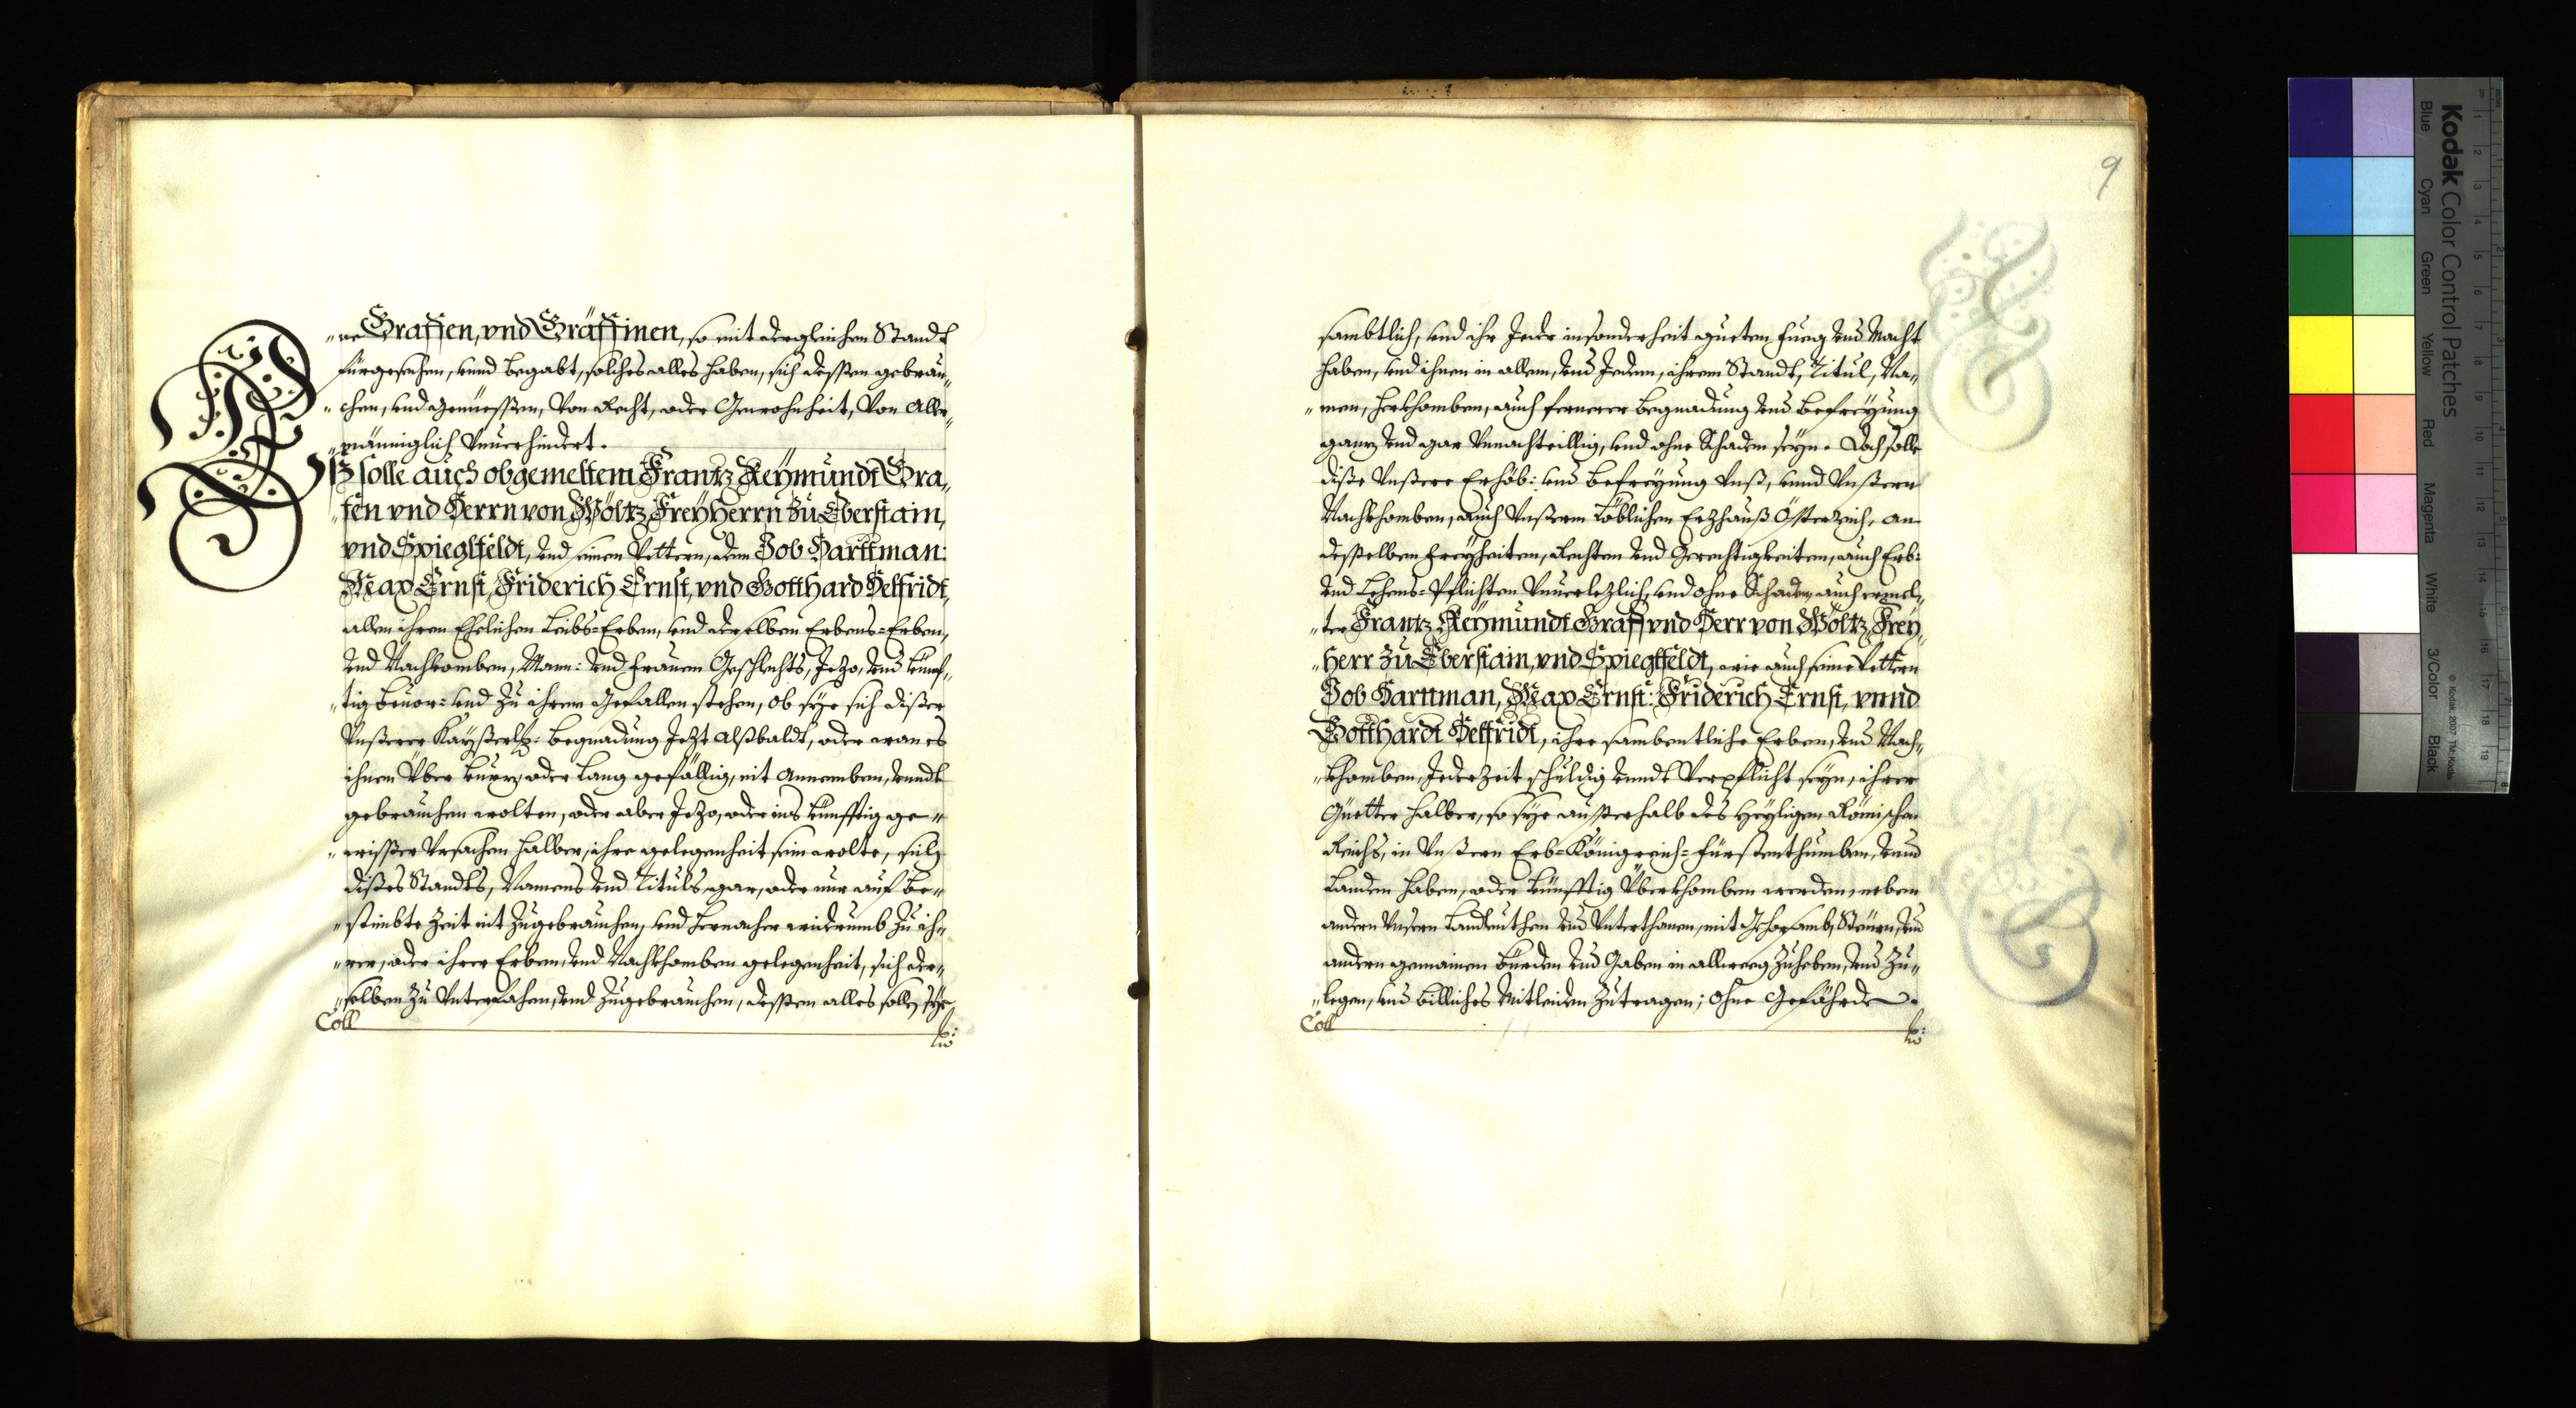 „re Graffen, vnd Gräffinen, so mit dergleichen Standt
fürgesehen, vnnd begabt, solches alles haben, sich dessen gebrau„
„chen, vnd genüessen, Von Recht, oder Gewohnheit, Von Aller„
„männiglich Vnuerhindert.
Eß solle auch obgemeltem Frantz Reymundt Gra„
„fen vnd Herrn von Wöltz FreyHerrn Zu Eberstain,
vnd Spieglfeldt, vnd seinen Vettern, dem Job Harttman:
Max Ernst, Friderich Ernst, vnd Gotthard Helfridt,
allen ihren Ehelichen Leibs=Erben, vnd derselben Erbens=Erben,
vnd Nachkomben, Mann: vnd Frauen Geschlechts, Jezo, vnd künf„
„tig beuor= vnd zu ihrem Gefallen stehen, ob sye sich diser
Vnserer Kayserlichen: Begnadung Jezt alßbaldt, oder wan es
ihnen Vber kurz oder lang gefällig, nit annemben, vnndt
gebrauchen wolten, oder aber Jezo, oder ins künfftig ge„
„wisser Vrsachen halber, ihre gelegenheit sein wolte, sich
dises Standts, Namens vnd Tituls, gar, oder nur auf be„
„stimbte Zeit nit zugebrauchen, vnd hernacher widerumb zu ih„
„rer, oder ihrer Erben, vnd Nachkhomben gelegenheit, sich der„
„selben zu Vnterfahen, vnd zugebrauchen, dessen alles sollen sye
Coll
9
sambtlich, vnd ihr Jeder insonderheit gueten fueg vnd Macht
haben, vnd ihnen in allem, vnd Jedem, ihrem Standt, Titul, Na„
„men, herkhomben, auch fernerer begnadung vnd befreyung
ganz vnd gar Vnnachteillig, vnd ohne Schaden seyn. Doch solle
dise Vnsere Erhöb: vnd befreyung Vnß, vnnd Vnsern
Nachkhomben, auch Vnserm Löblichen Erzhauß Österreich, an
desselben freyheiten, Rechten vnd Gerechtigkeiten, auch Erb:
vnd Lehens=Pflichten Vnuerlezlich, vnd ohne Schaden, auch ermel„
„ter Frantz Reymundt Graff vnd Herr von Wöltz, Frey„
„Herr Zu Eberstain, vnd Spieglfeldt, wie auch seine Vettern
Job Harttman, Max Ernst: Friderich Ernst, vnnd
Gotthardt Helfridt, ihre sambentliche Erben, vnd Nach„
„khomben, Jederzeit schuldig vnndt Verpflicht seyn, ihrer
Güetter halber, so sye ausserhalb des Heyligen Römischen
Reichs, in Vnsern Erb=Königreich= Fürstenthumben, vnnd
Landen haben, oder künfftig Vberkhomben werden, neben
andern Vnsern Landleuthen vnd Vnterthanen, mit Gehorsamb, Steuren, vnd
andern gemainen bürden vnd Gaben in allweeg Zuheben, vnd Zu„
„legen, vnd billiches Mitleiden zutragen; ohne Gefährde.
Coll